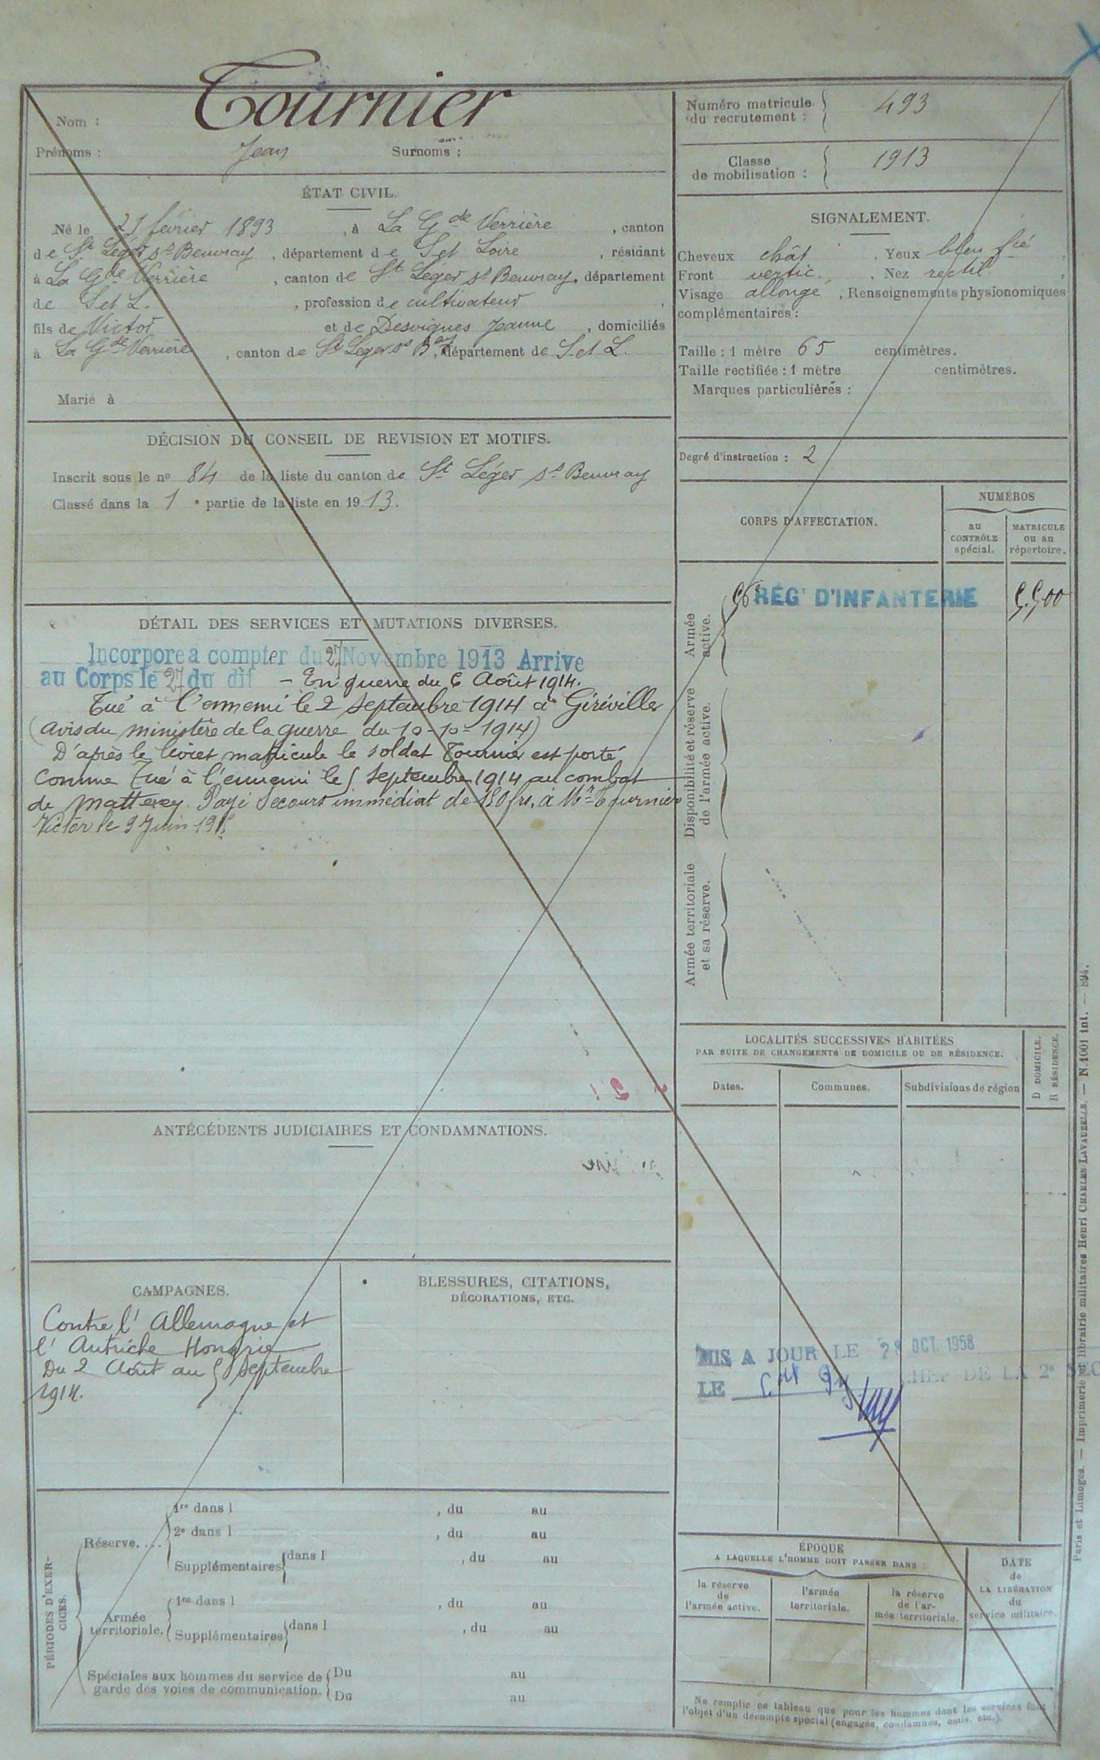 Nom : Tournier
Prénoms : Jean Surnoms :
ÉTAT CIVIL.
Né le février 1893, à La Gde Verrière, canton
de St Léger ss Beuvray, département de S et Loire, résidant
à La Gde Verrière, canton de St Leger ss Beuvray, département
de S et L., profession de cultivateur,
fils de Victor et de Desvignes Jeanne, domiciliés
à La Gde Verrière, canton de St Leger ss Bay, département de S. et L.
Marié à
DÉCISION DU CONSEIL DE REVISION ET MOTIFS.
Inscrit sous le no 84 de la liste du canton de St Léger ss Beuvray
Classé dans la 1e partie de la liste en 1913.
DÉTAIL DES SERVICES ET MUTATIONS DIVERSES.
Incorporé à compter du 27 Novembre 1913 Arrivé
au Corps le 27 du dit – En guerre du Août 1914.
Tué à l'ennemi le 2 septembre 1914 à Giréviller
(avis du ministère de la guerre du 10-10-1914)
D'après le livret matricule le soldat Tournier est porté
comme tué à l'ennemi le 5 septembre 1914 au combat
de Mattexey. Payé secours immédiat de 150 frs. à Mr Tournier
Victor le 9 Juin
ANTÉCÉDENTS JUDICIAIRES ET CONDAMNATIONS.
CAMPAGNES.
Contre l'Allemagne et
l'Autriche Hongrie
Du 2 Août au 5 septembre
1914.
BLESSURES, CITATIONS,
DÉCORATIONS, ETC.
PÉRIODES D'EXERCICES.
Réserve....
1re dans l , du au
2e dans l , du au
Supplémentaires dans l , du au
Armée territoriale.
1re dans l , du au
Supplémentaires dans l , du au
Spéciales aux hommes du service de Du au
garde des voies de communication. Du au
Numéro matricule
du recrutement : 493
Classe
de mobilisation : 1913
SIGNALEMENT.
Cheveux chât. Yeux bleu
Front vertic. Nez rectil,
Visage allongé, Renseignements physionomiques
complémentaires :
Taille : 1 mètre 65 centimètres.
Taille rectifiée : 1 mètre centimètres.
Marques particulières :
Degré d'instruction : 2
CORPS D'AFFECTATION.
NUMÉROS
au
CONTRÔLE
spécial.
MATRICULE
ou au
répertoire.
Armée
active.
56e RÉGt D'INFANTERIE 5500
Disponibilité et réserve
de l'armée active.
Armée territoriale
et sa réserve.
LOCALITÉS SUCCESSIVES HABITÉES
PAR SUITE DE CHANGEMENTS DE DOMICILE OU DE RÉSIDENCE.
Dates. Communes. Subdivisions de région
D DOMICILE.
R RÉSIDENCE.
MIS A JOUR LE 28 OCT. 1958
LE CHEF DE LA 2e SEC
ÉPOQUE
A LAQUELLE L'HOMME DOIT PASSER DANS :
la réserve
de
l'armée active.
l'armée
territoriale.
la réserve
de l'ar-
mée territoriale.
DATE
de
LA LIBÉRATION
du
service militaire.
Ne remplir ce tableau que pour les hommes dont les services font
l'objet d'un décompte spécial (engagés, condamnés, omis, etc.).
Paris et Limoges. — Imprimerie et librairie militaires Henri CHARLES-LAVAUZELLE. — N. 1001 int. — 894.